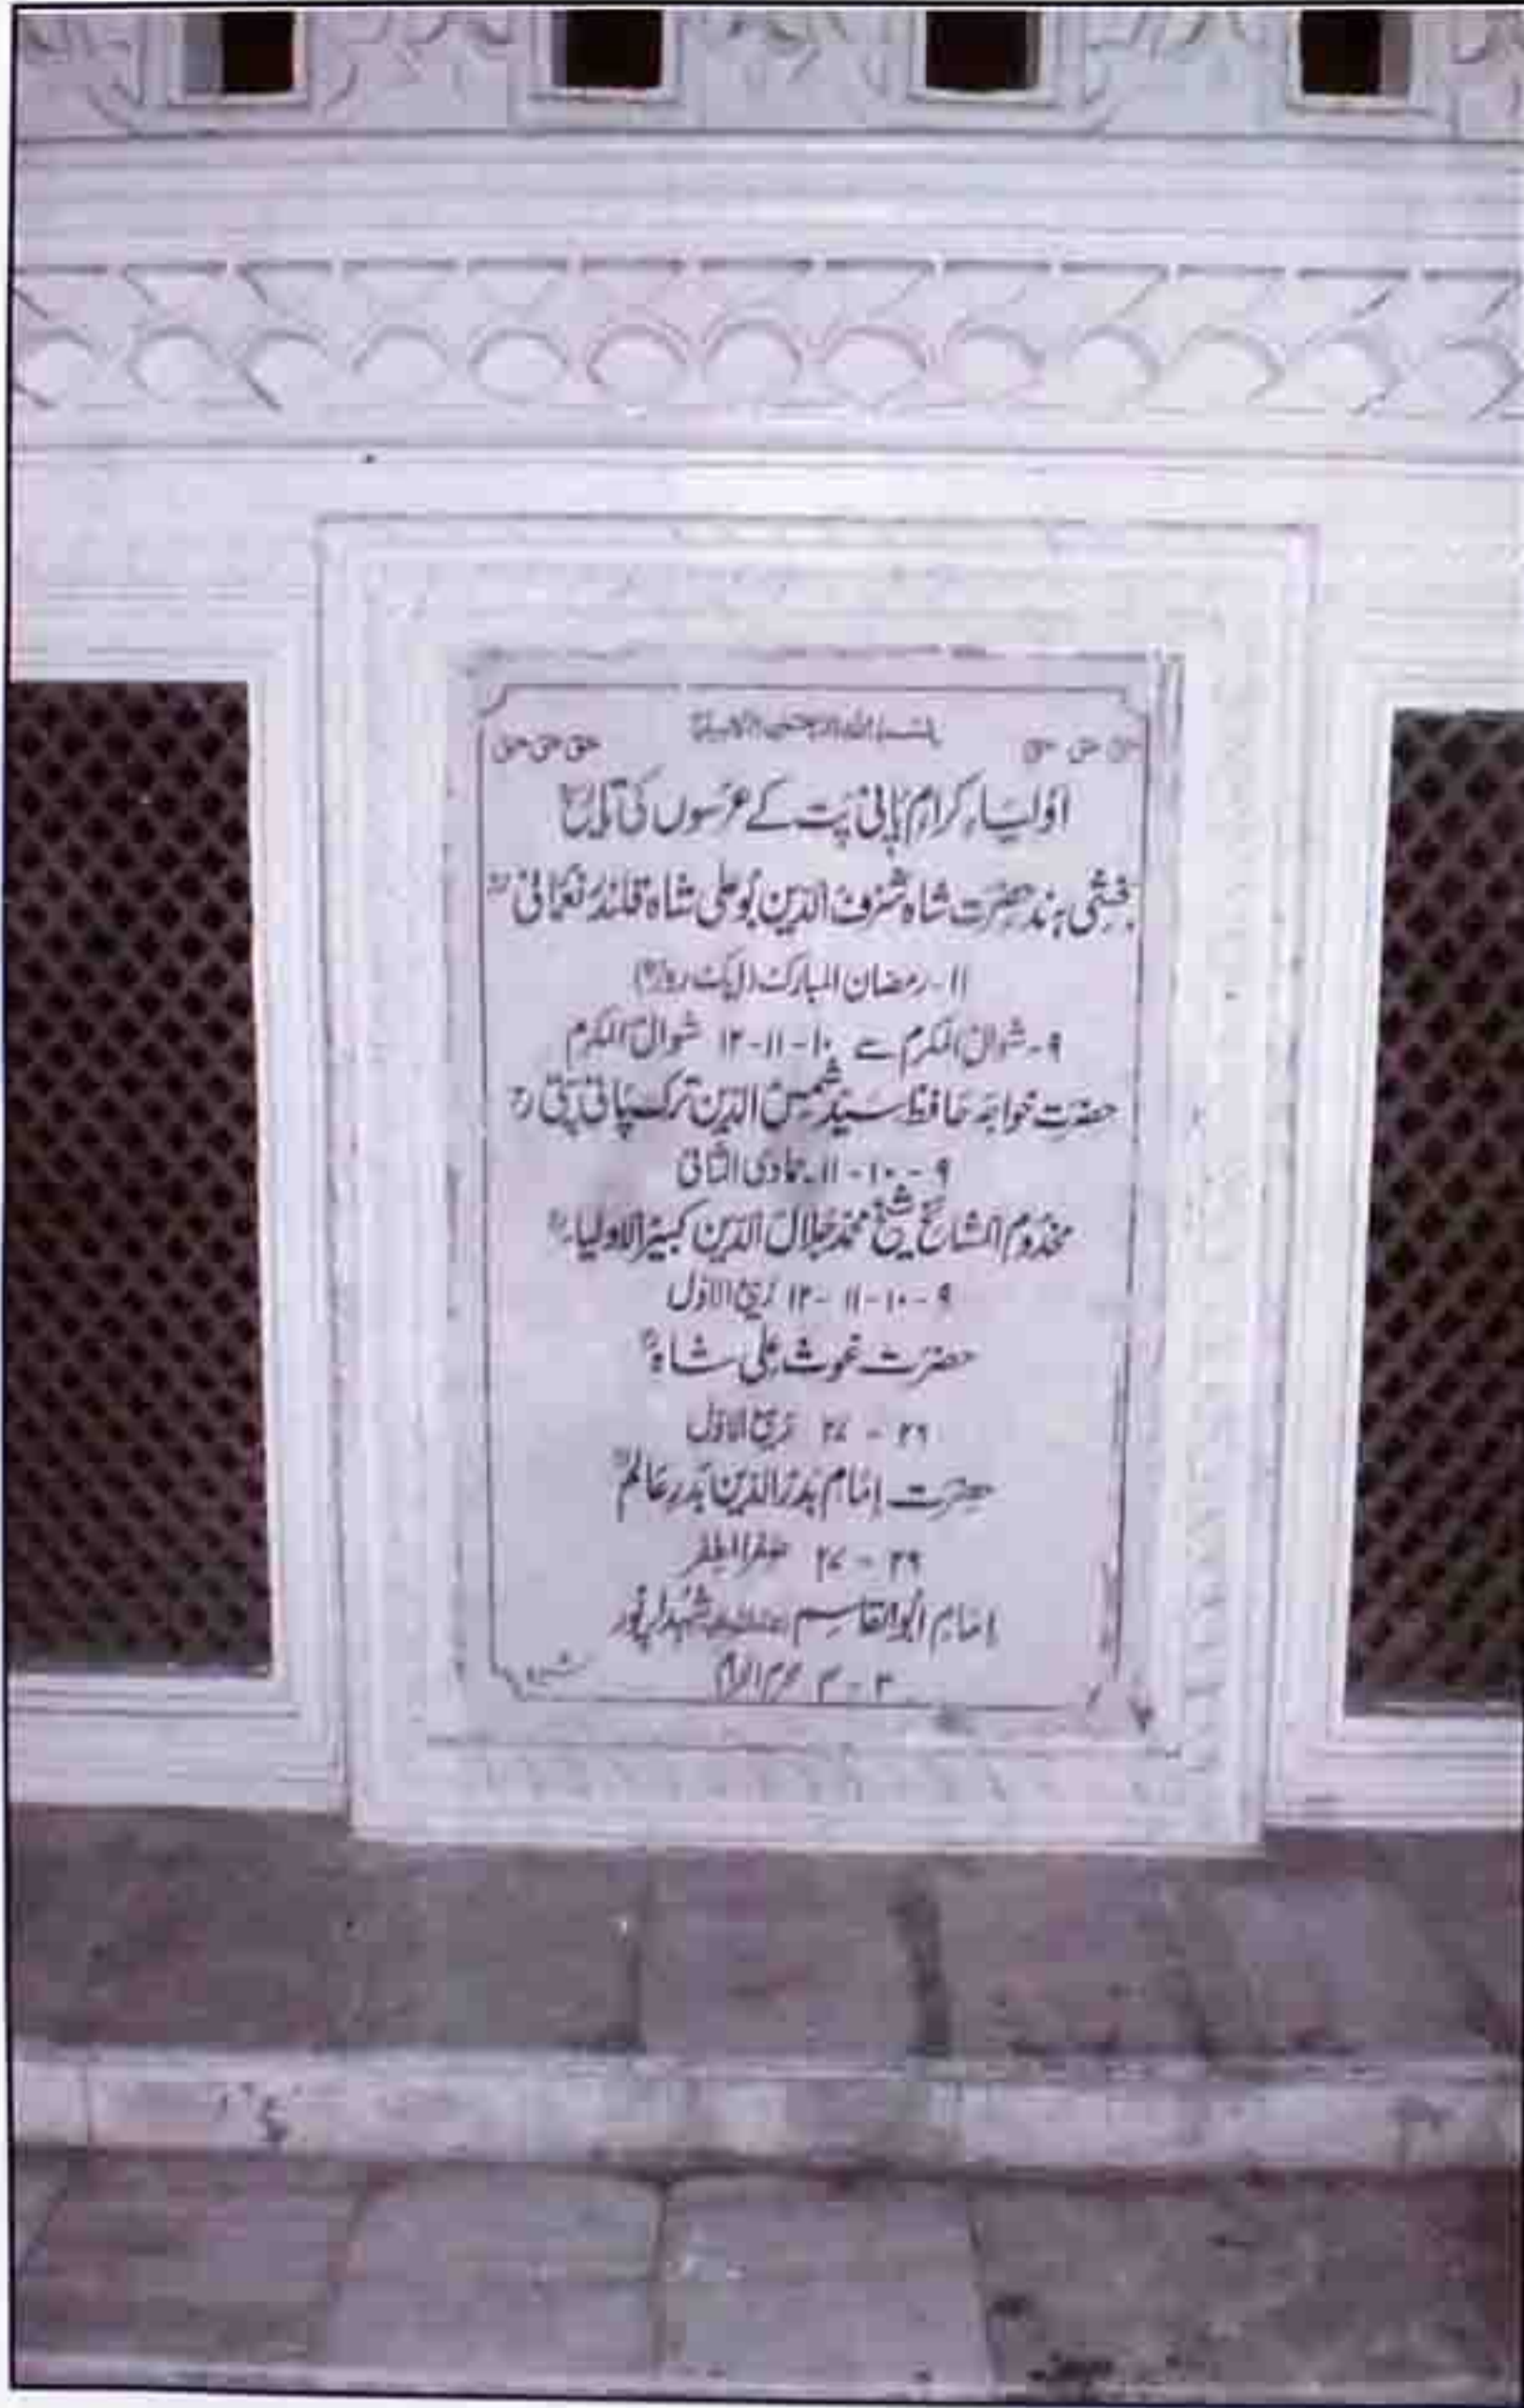 بسم اللہ الرحمن الرحیم
حق حق حق حق حق حق
اولیاء کرام پانی پت کے عرسوں کی تاریخ
چشتی ہند حضرت شاہ شرف الدین بوعلی شاہ قلندر نعمانیؒ
۱۱- رمضان المبارک (ایک روزہ)
۹- شوال المکرم سے ۱۰-۱۱-۱۲ شوال المکرم
حضرت خواجہ حافظ سید شمس الدین ترک پانی پتیؒ
۹-۱۰-۱۱- جمادی الثانی
مخدوم المشائخ شیخ محمد جلال الدین کبیر الاولیاءؒ
۹-۱۰-۱۱-۱۲ ربیع الاول
حضرت غوث علی شاہؒ
۲۶ - ۲۷ ربیع الاول
حضرت امام بدر الدین بدر عالمؒ
۲۶ - ۲۷ صفر المظفر
امام ابوالقاسم
۳ - ۴ محرم الحرام